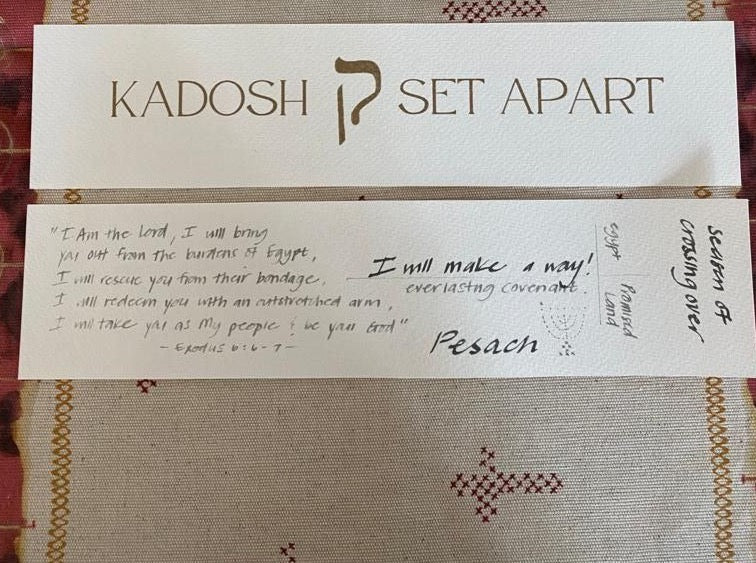 KADOSH ק SET APART
"I Am the Lord, I will bring
you out from the burdens of Egypt,
I will rescue you from their bondage,
I will redeem you with an outstretched arm,
I will take you as My people & be your God"
- Exodus 6:6-7 -
I will make a way!
everlasting covenant.
Pesach
egypt
Promised
Land
season of
crossing over